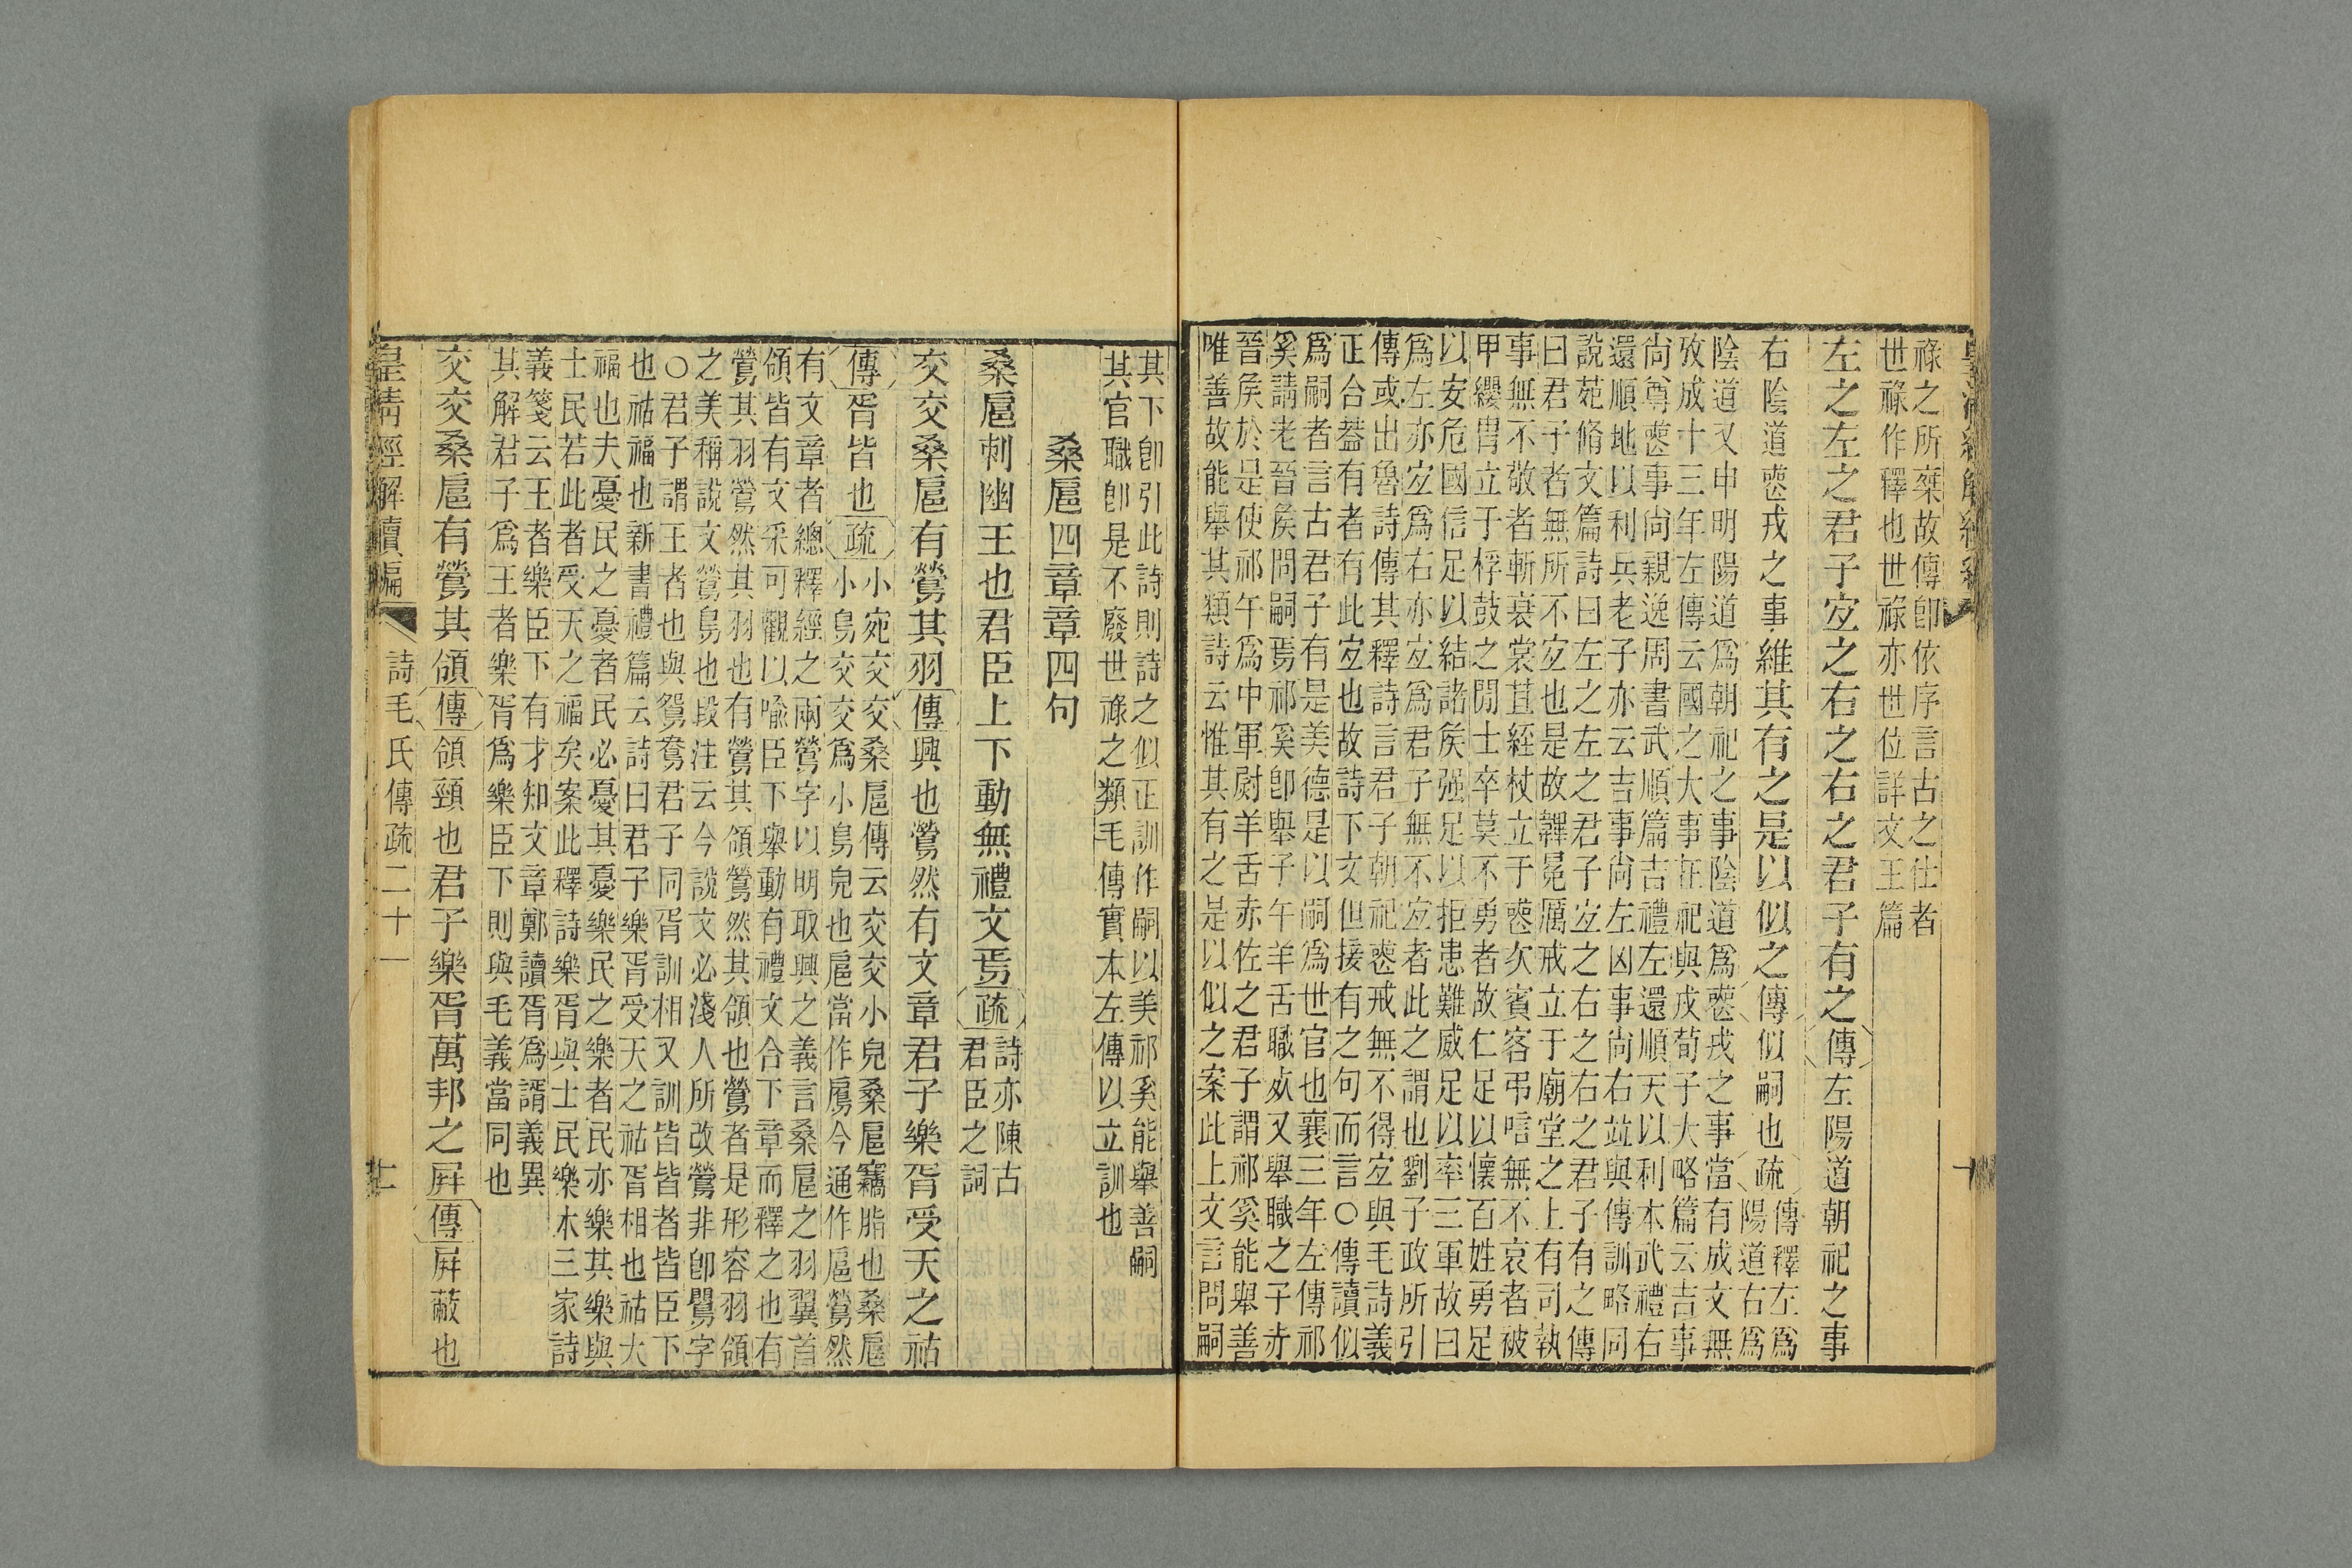 祿之所桀故傳卽依序言古之仕者
世祿作釋也世祿亦世位詳文王篇
左之左之君子宐之右之右之君子有之傳左陽道朝祀之事
右陰道䘮戎之事維其有之是以似之傳似嗣也疏傳釋左爲
陽道右爲
陰道又申明陽道爲朝祀之事陰道爲䘮戎之事當有成文無
攷成十三年左傳云國之大事在祀與戎荀子大略篇云吉事
尙尊䘮事尙親逸周書武順篇吉禮左還順天以利本武禮右
還順地以利兵老子亦云吉事尙左凶事尙右竝與傳訓略同
說苑脩文篇詩曰左之左之君子宐之右之右之君子有之傳
曰君子者無所不宐也是故韠冕厲戒立于廟堂之上有司執
事無不敬者斬衰裳苴絰杖立于䘮次賓客弔唁無不哀者被
甲纓冑立于桴鼓之閒士卒莫不勇者故仁足以懷百姓勇足
以安危國信足以結諸矦强足以拒患難威足以率三軍故曰
爲左亦宐爲右亦宐爲君子無不宐者此之謂也劉子政所引
傳或出魯詩傳其釋詩言君子朝祀䘮戒無不得宐與毛詩義
正合葢有者有此宐也故詩下文但接有之句而言○傳讀似
爲嗣者言古君子有是美德是以嗣爲世官也襄三年左傳祁
奚請老晉矦問嗣焉祁奚卽舉子午羊舌職𣦸又舉職之子赤
晉矦於是使祁午爲中軍尉羊舌赤佐之君子謂祁奚能舉善
唯善故能舉其類詩云惟其有之是以似之案此上文言問嗣
其下卽引此詩則詩之似正訓作嗣以美祁奚能舉善嗣
其官職卽是不廢世祿之類毛傳實本左傳以立訓也
桑扈四章章四句
桑扈刺幽王也君臣上下動無禮文焉疏詩亦陳古
君臣之詞
交交桑扈有鶯其羽傳興也鶯然有文章君子樂胥受天之祜
傳胥皆也疏小宛交交桑扈傳云交交小皃桑扈竊脂也桑扈
小鳥交交爲小鳥皃也扈當作雇今通作扈鶯然
有文章者總釋經之兩鶯字以明取興之義言桑扈之羽翼首
領皆有文采可觀以喻臣下舉動有禮文合下章而釋之也有
鶯其羽鶯然其羽也有鶯其領鶯然其領也鶯者是形容羽領
之美稱說文鶯鳥也段注云今說文必淺人所改鶯非卽鸎字
○君子謂王者也與鴛鴦君子同胥訓相又訓皆皆者皆臣下
也祜福也新書禮篇云詩曰君子樂胥受天之祜胥相也祜大
福也夫憂民之憂者民必憂其憂樂民之樂者民亦樂其樂與
士民若此者受天之福矣案此釋詩樂胥與士民樂本三家詩
義箋云王者樂臣下有才知文章鄭讀胥爲諝義異
其解君子爲王者樂胥爲樂臣下則與毛義當同也
交交桑扈有鶯其領傳領頸也君子樂胥萬邦之屛傳屛蔽也
皇清經解續編 詩毛氏傳疏二十一 七